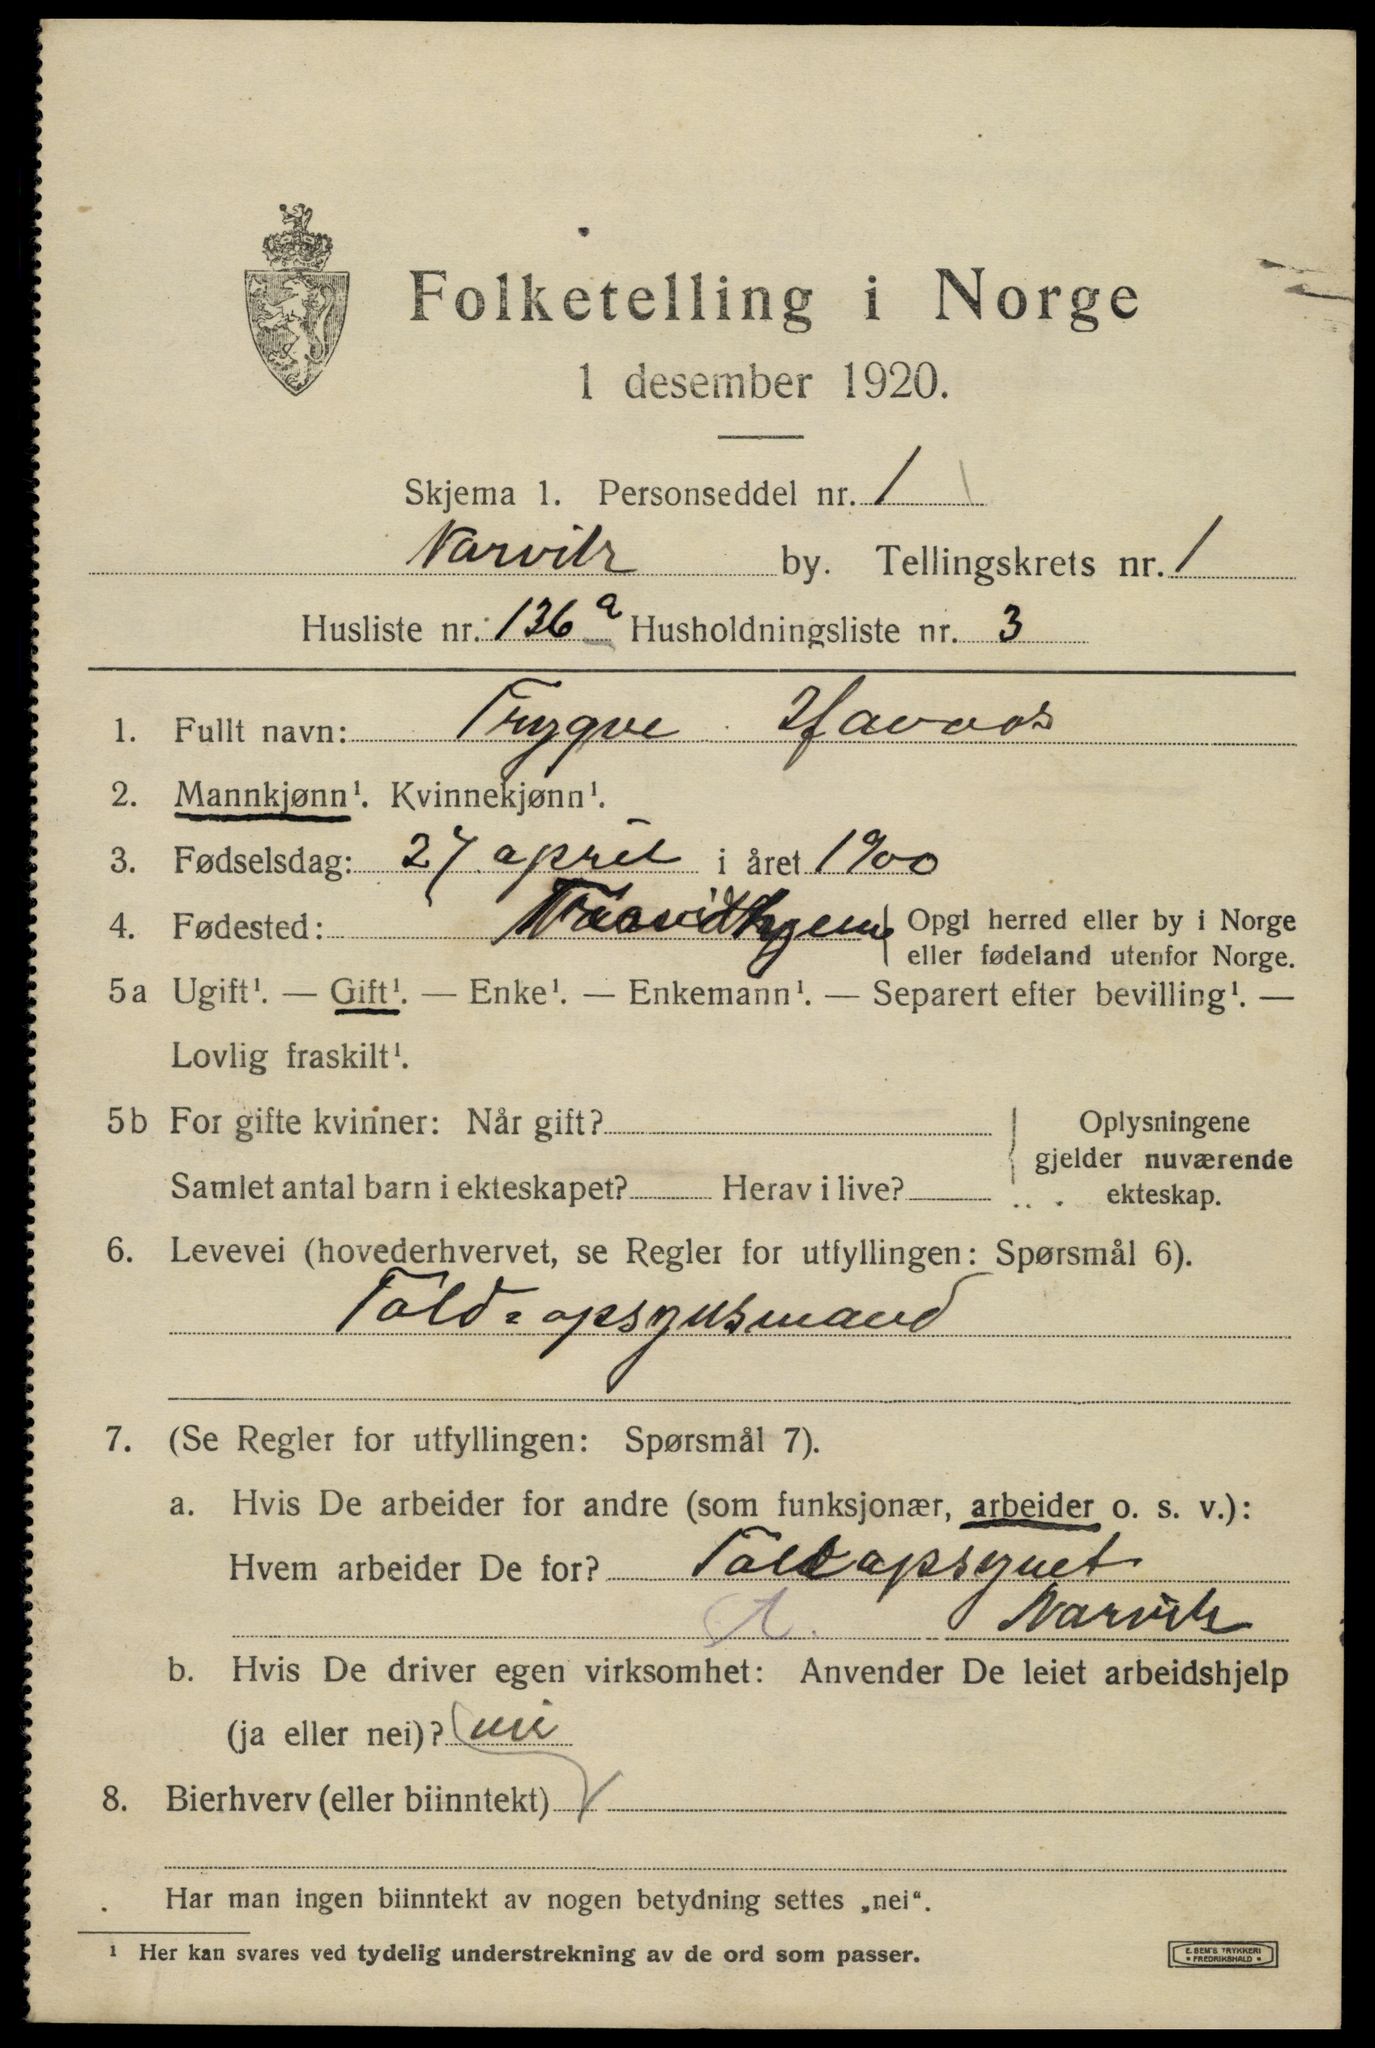 Folketelling i Norge
1 desember 1920.
Skjema 1. Personseddel nr. 1
Narvik by. Tellingskrets nr. 1
Husliste nr. 136 a Husholdningsliste nr. 3
1. Fullt navn: Trygve
2. Mannkjønn¹. Kvinnekjønn¹.
3. Fødselsdag: 27 april i året 1900
4. Fødested: Opgi herred eller by i Norge
eller fødeland utenfor Norge.
5a Ugift¹. — Gift¹. — Enke¹. — Enkemann¹. — Separert efter bevilling¹. —
Lovlig fraskilt¹.
5b For gifte kvinner: Når gift? Oplysningene
gjelder nuværende
Samlet antal barn i ekteskapet? Herav i live? ekteskap.
6. Levevei (hovederhvervet, se Regler for utfyllingen: Spørsmål 6).
Told-opsynsmand
7. (Se Regler for utfyllingen: Spørsmål 7).
a. Hvis De arbeider for andre (som funksjonær, arbeider o. s. v.):
Hvem arbeider De for? Toldopsynet
Narvik
b. Hvis De driver egen virksomhet: Anvender De leiet arbeidshjelp
(ja eller nei)? nei
8. Bierhverv (eller biinntekt)
Har man ingen biinntekt av nogen betydning settes „nei“.
¹ Her kan svares ved tydelig understrekning av de ord som passer.
E. SEM'S TRYKKERI
• FREDRIKSHALD •